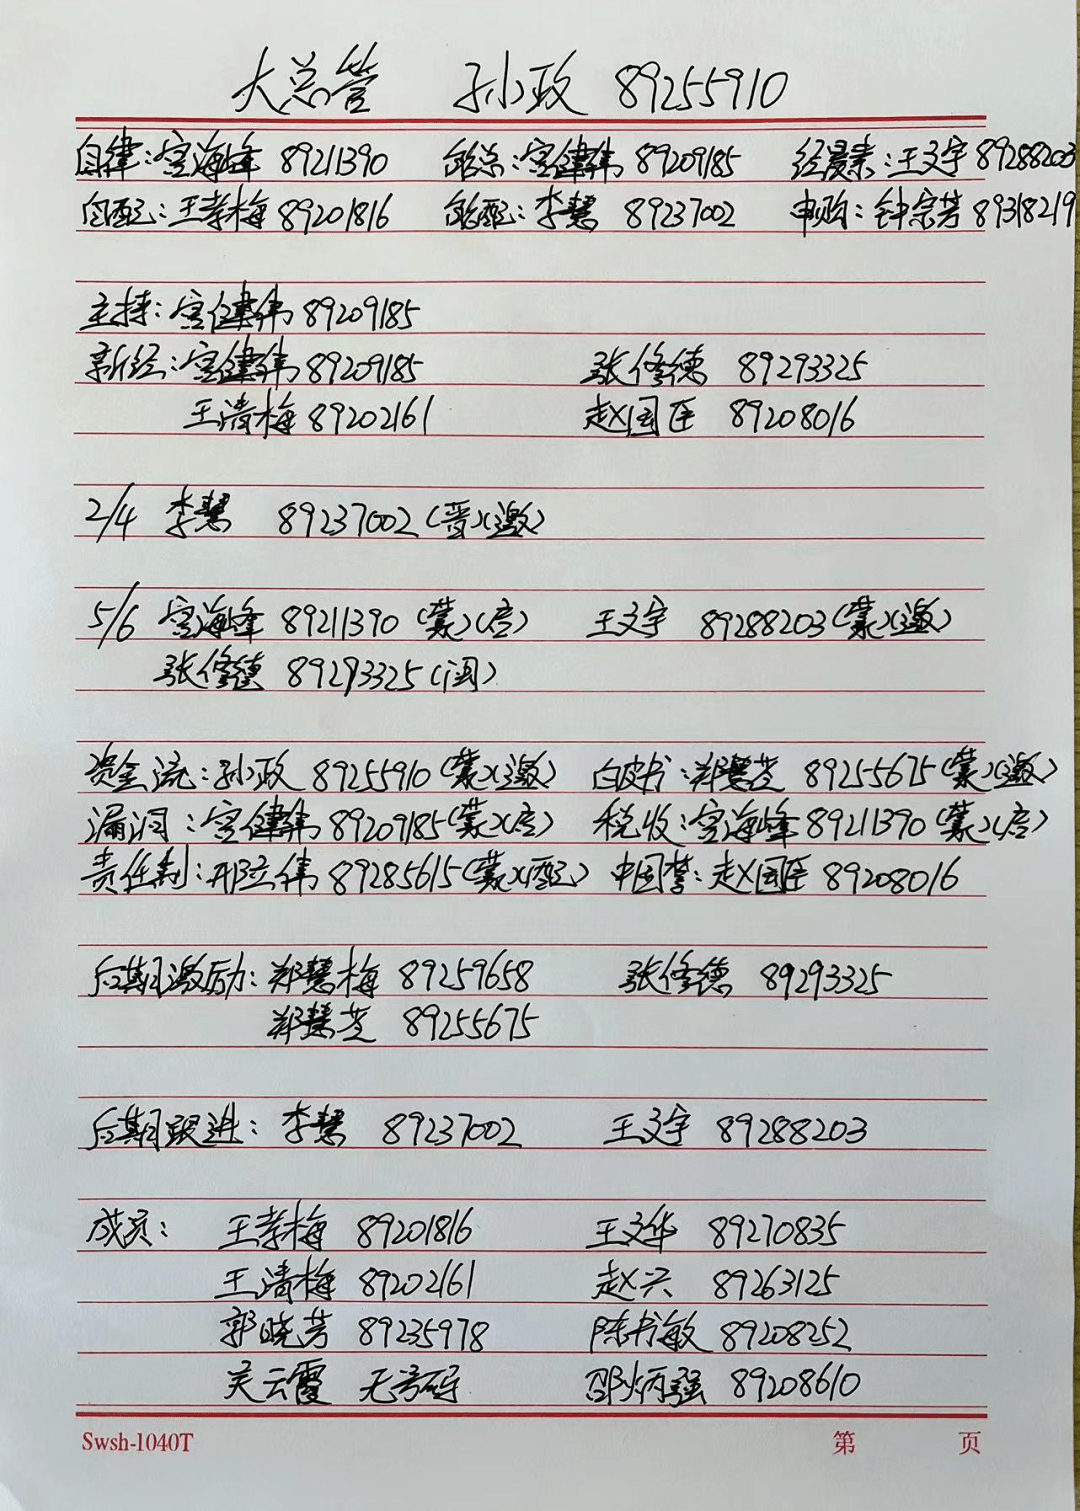 大总管 孙政 89255910
自律:宫海峰 89211390 能总:宫健伟 89209185 经晨素:王文宇 89288203
自配:王孝梅 89201816 能配:李慧 89237002 申购:钟宗芳 89318219
主持:宫健伟 89209185
新经:宫健伟 89209185 张修德 89293325
王清梅 89202161 赵国臣 89208016
2/4 李慧 89237002(晋)(邀)
5/6 宫海峰 89211390(蒙)(启) 王文宇 89288203(蒙)(邀)
张修德 89293325(闯)
资金流:孙政 89255910(蒙)(邀) 白皮书:郑慧芝 89255675(蒙)(邀)
漏洞:宫健伟 89209185(蒙)(启) 税收:宫海峰 89211390(蒙)(启)
责任制:邢立伟 89285615(蒙)(配) 中国梦:赵国臣 89208016
后期激励:郑慧梅 89259658 张修德 89293325
郑慧芝 89255675
后期跟进:李慧 89237002 王文宇 89288203
成员: 王孝梅 89201816 王文华 89270835
王清梅 89202161 赵兴 89263125
郭晓芳 89235978 陈书敏 89208252
吴云霞 无号码 邵炳强 89208610
Swsh-1040T 第 页